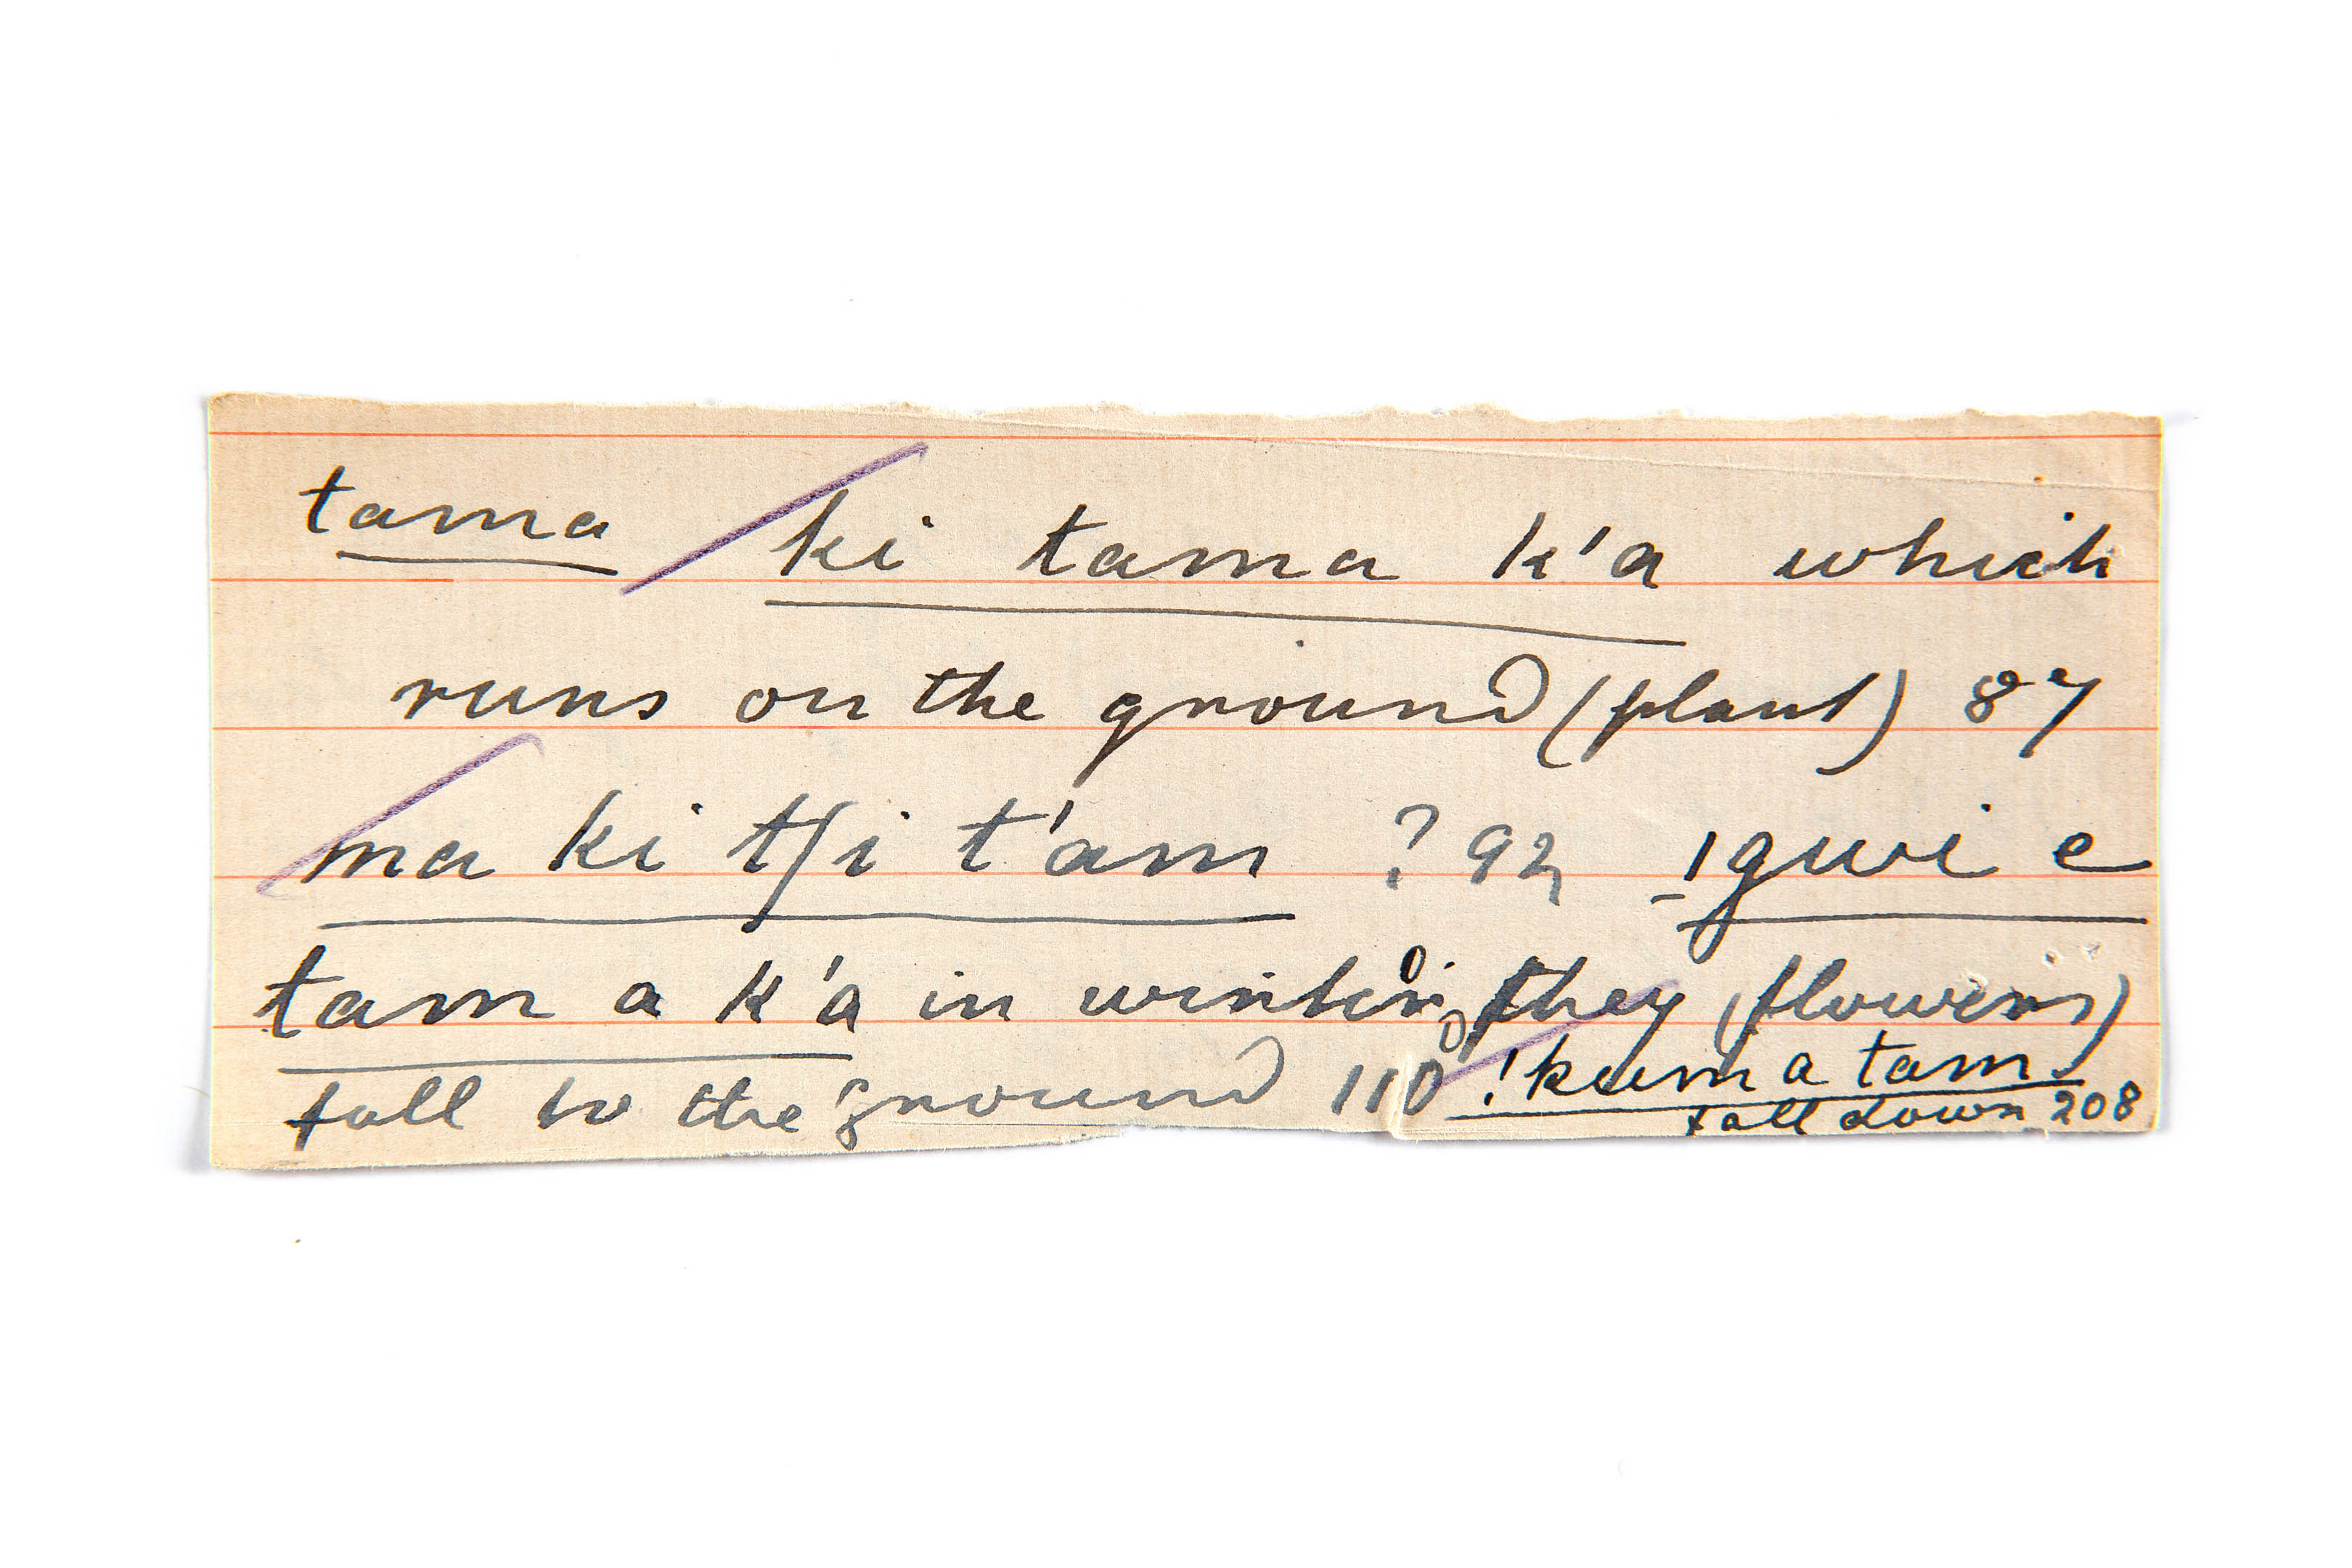 tama ki tama k'a which
runs on the ground (plant) 87
ma ki tʃi t'am ? 92 ǀgwi e
tam a k'a in winter they (flowers)
fall to the ground 110 !kum a tam
fall down 208